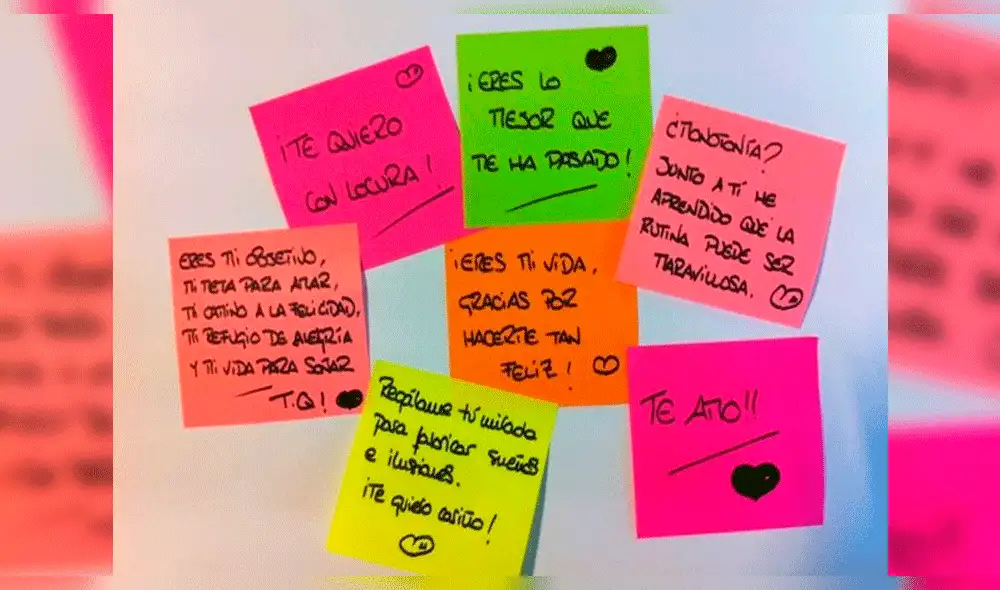 ¡TE QUIERO
CON LOCURA!
¡ERES LO
MEJOR QUE
ME HA PASADO!
¿MONOTONÍA?
JUNTO A TÍ HE
APRENDIDO QUE LA
RUTINA PUEDE SER
MARAVILLOSA.
ERES MI OBJETIVO,
MI META PARA AMAR,
MI CAMINO A LA FELICIDAD,
MI REFUGIO DE ALEGRÍA
Y MI VIDA PARA SOÑAR
T.Q!
¡ERES MI VIDA,
GRACIAS POR
HACERME TAN
FELIZ!
Regálame tú mirada
para fabricar sueños
e ilusiones.
¡Te quiero cariño!
TE AMO!!